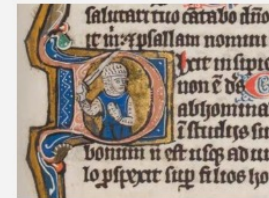 salutari tuo cātabo dn̄o
te in: ⁊ psallam nomini
Dixit insipie
non ē dš
abhomina
i studijs su
bonum n̄ est usq̨ ad un
lo pspexit sup filios ho